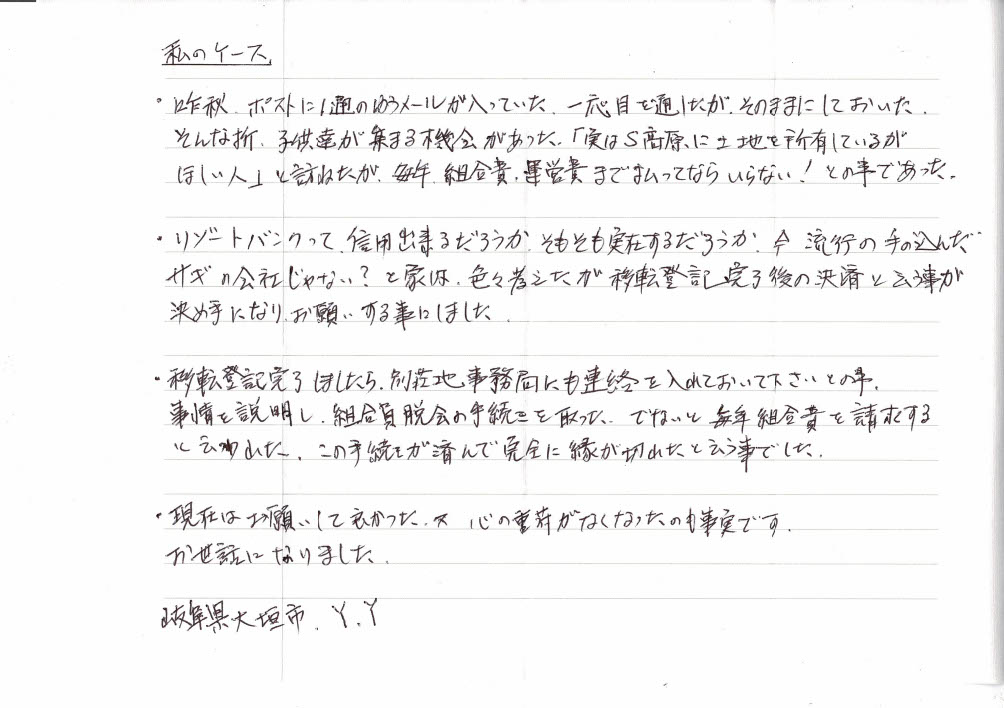 私のケース
・昨秋、ポストに1通のゆうメールが入っていた、一応目を通したが、そのままにしておいた、
そんな折、子供達が集まる機会があった、「実はS高原に土地を所有しているが
ほしい人」と訪ねたが、毎年、組合費、運営費まで払ってならいらない!との事であった。
・リゾートバンクって、信用出来るだろうか、そもそも実在するだろうか、今流行の手の込んだ
サギの会社じゃない?と家は、色々考えたが移転登記完了後の決済と云う事が
決め手になり、お願いする事にしました。
・移転登記完了しましたら、別荘地事務局にも連絡を入れておいて下さいとの事、
事情を説明し、組合員脱会の手続きを取った、でないと毎年組合費を請求する
と云われた、この手続きが済んで完全に縁が切れたと云う事でした。
・現在はお願いして良かった、 心の重荷がなくなったのも事実です、
お世話になりました、
岐阜県大垣市、Y.Y